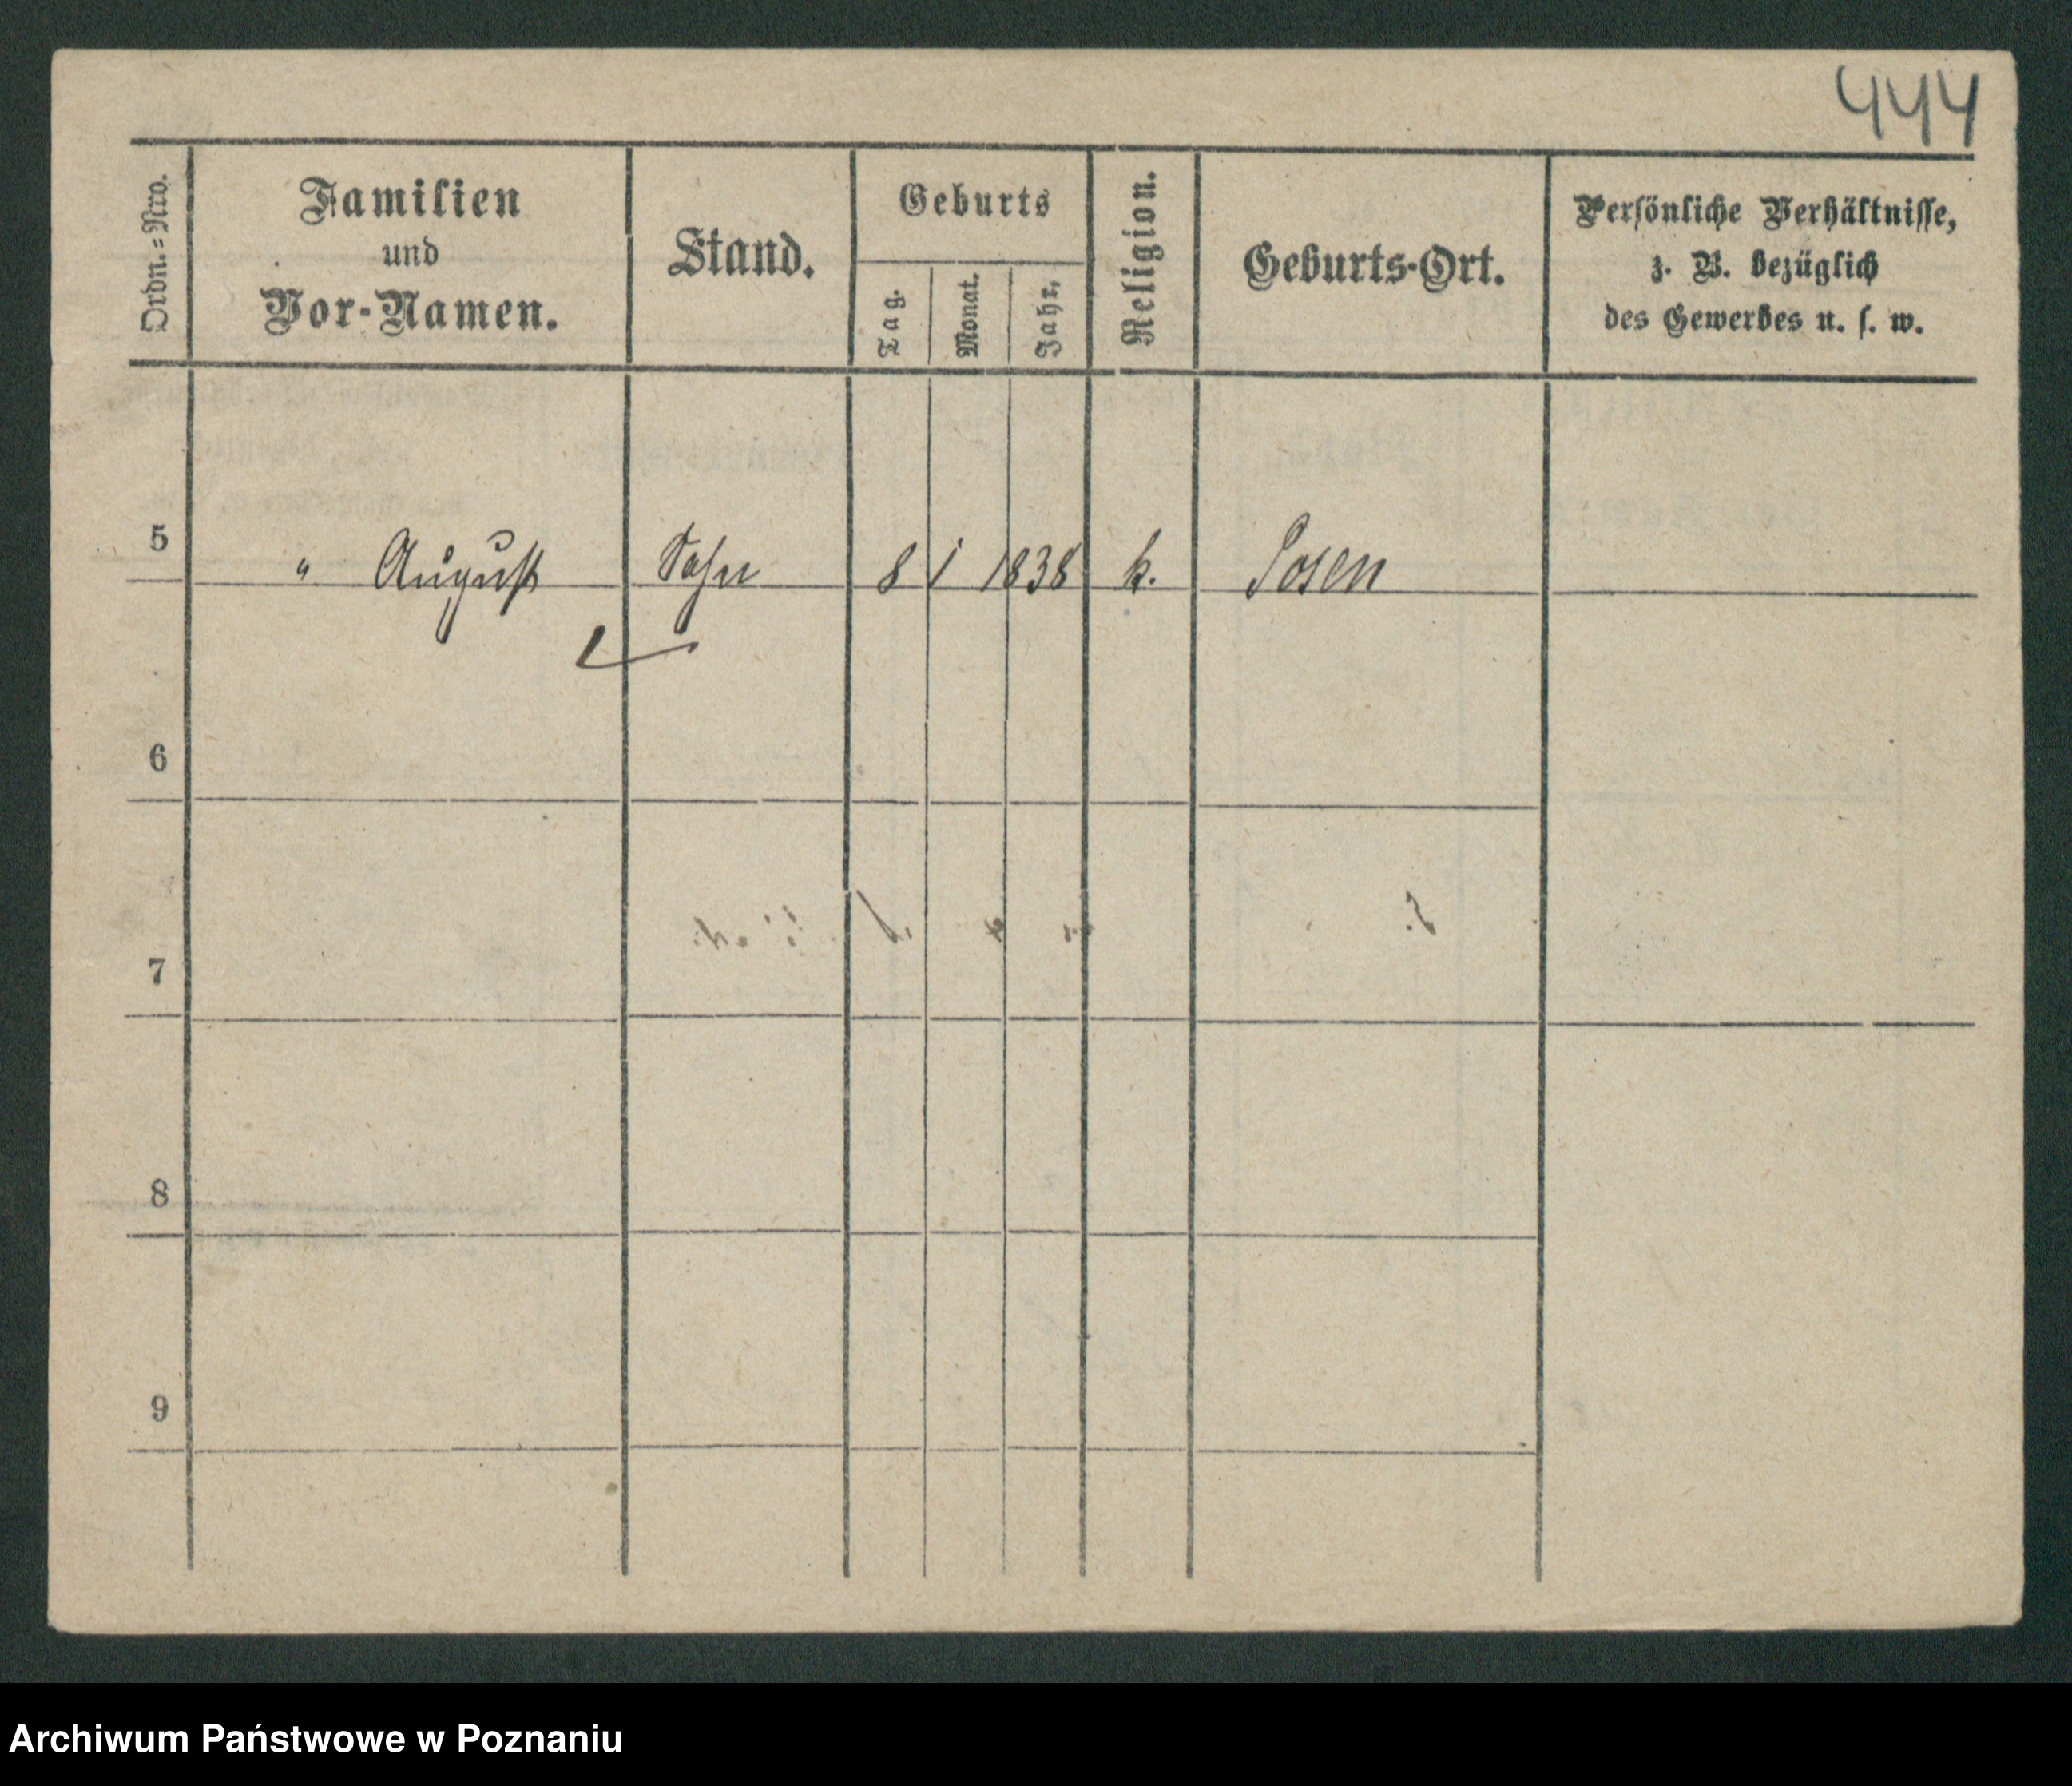 444
Ordn.=Nro.
Familien
und
Vor-Namen.
Stand.
Geburts
Tag.
Monat.
Jahr,
Religion.
Geburts-Ort.
Persönliche Verhältnisse,
z. B. bezüglich
des Gewerbes u. s. w.
5 " August Sohn 8 1 1838 k. Posen
6
7
8
9
Archiwum Państwowe w Poznaniu